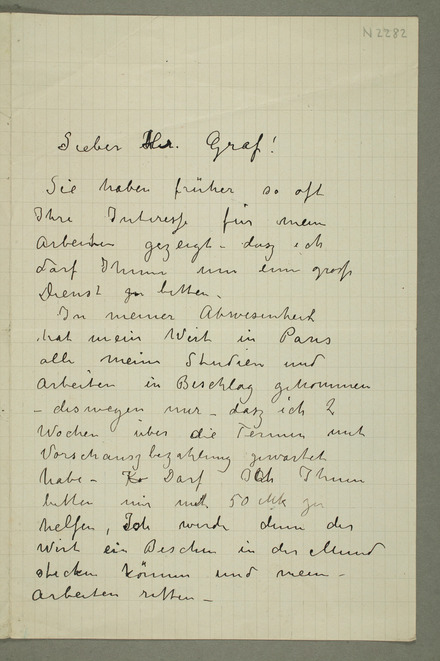 N 2282
Lieber Hr. Graf!
Sie haben früher so oft
Ihre Interesse für mein
Arbeiten gezeigt – dasz ich
darf Ihnen um ein gross
Dienst zu bitten.
In meiner Abwesenheit
hat mein Wirt in Paris
alle meine Studien und
Arbeiten in Beschlag genommen
– deswegen nur – dasz ich 2
Wochen über die Termin mit
Vorschauszbezahlung gewartet
habe – Darf Ich Ihnen
bitten mir mit 50 Mk zu
helfen, Ich werde dem der
Wirt ein Beschen in der Mund
stecken können und mein
Arbeiten retten –